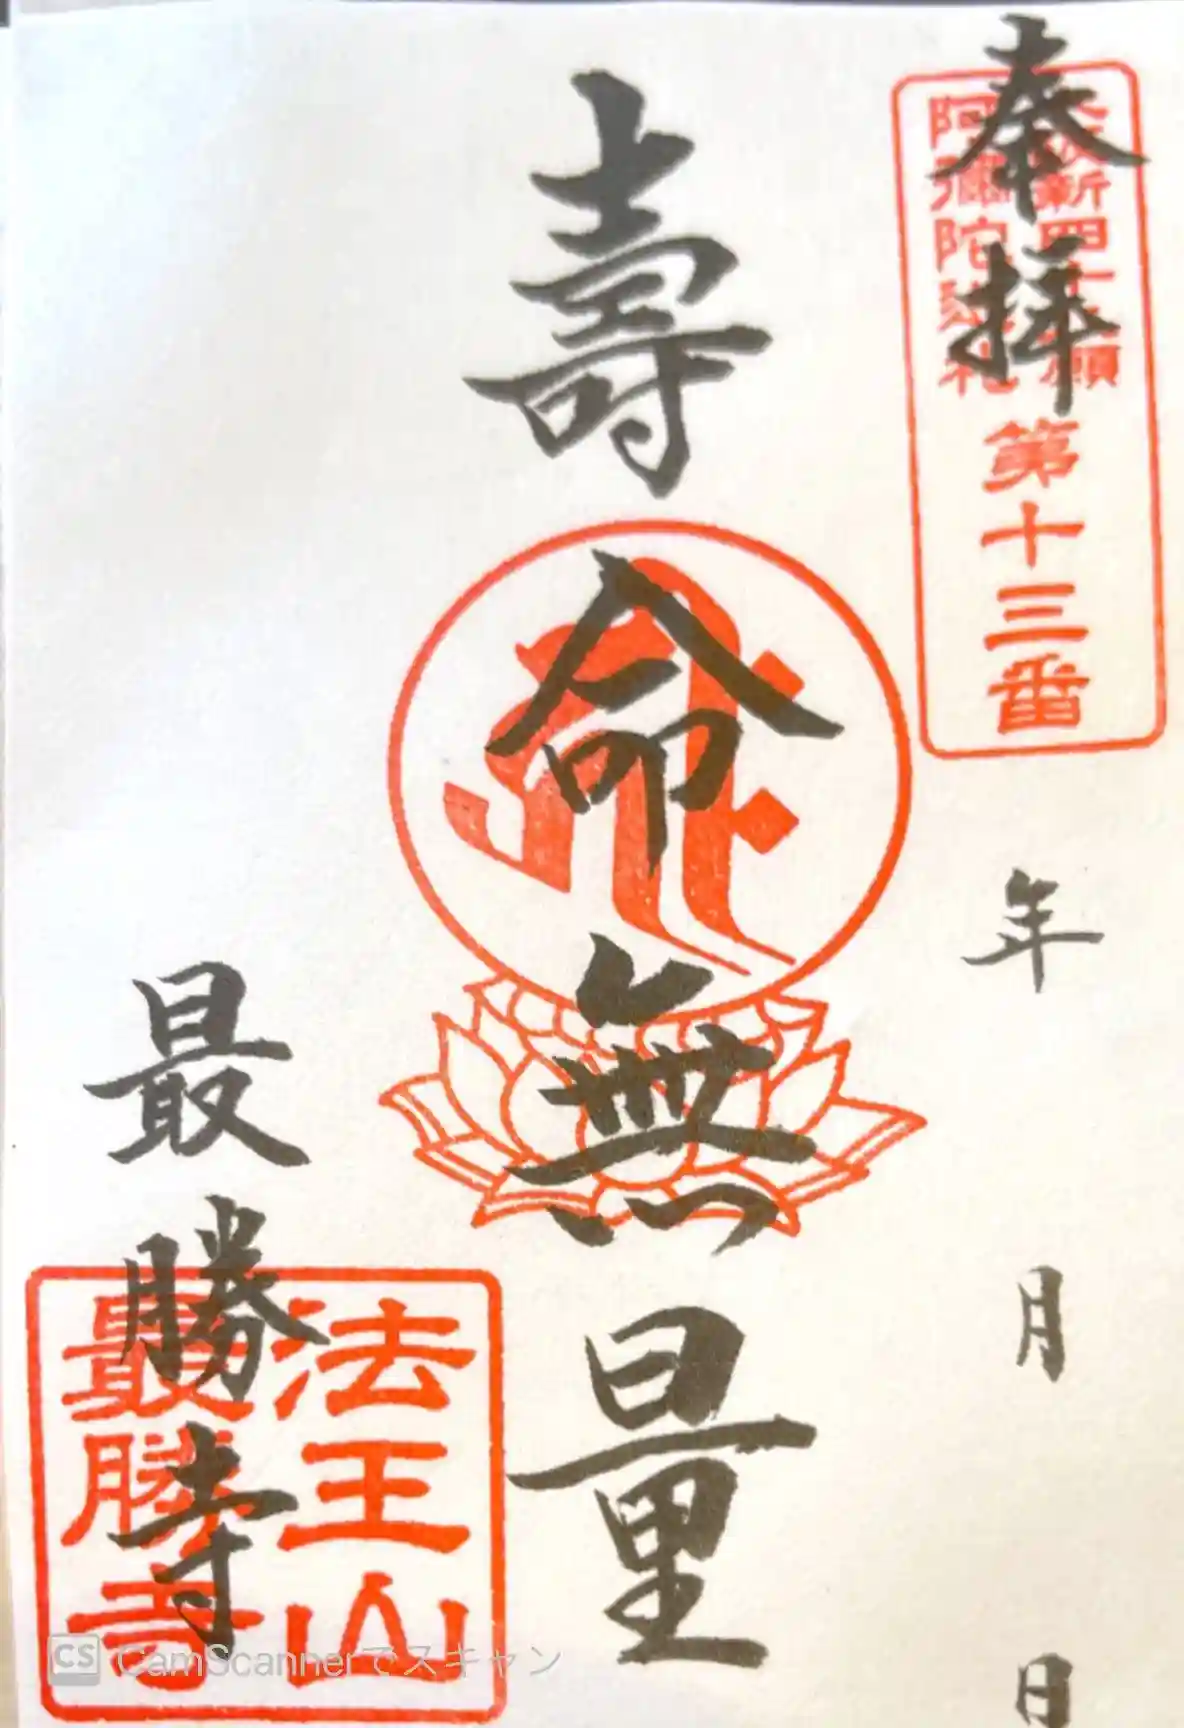 奉拝
大阪新四十八願
阿彌陀巡礼
第十三番
年
月
日
壽命無量
最勝寺
法王山
最勝寺
CS CamScannerでスキャン